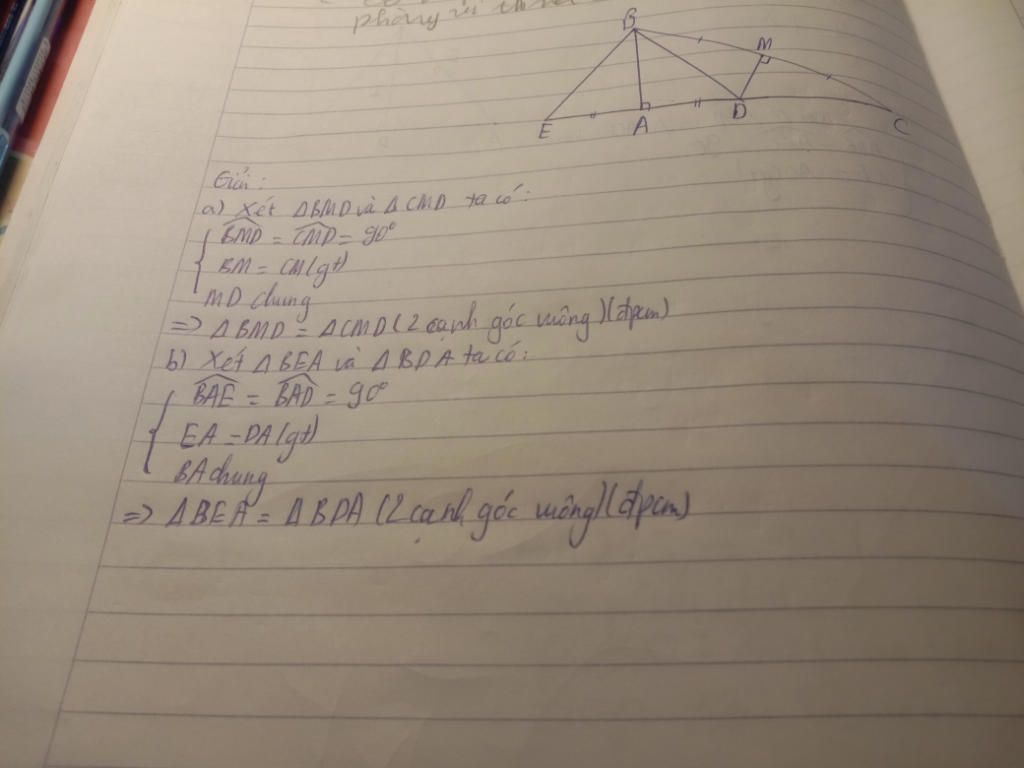 phòng vi
B
M
E
A
D
C
Giải:
a) Xét ΔBMD và ΔCMD ta có:
BMD = CMD = 90°
BM = CM (gt)
MD chung
=> ΔBMD = ΔCMD (2 cạnh góc vuông) (đpcm)
b) Xét ΔBEA và ΔBDA ta có:
BAE = BAD = 90°
EA = DA (gt)
BA chung
=> ΔBEA = ΔBDA (2 cạnh góc vuông) (đpcm)